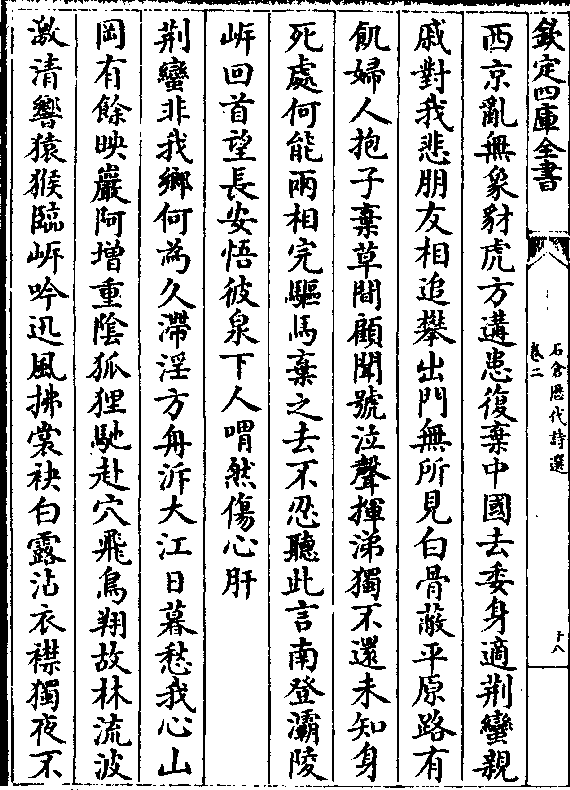 欽定四庫全書
石倉歴代詩選
卷二
十八
西京亂無象豺虎方遘患復棄中國去委身適荆蠻親
戚對我悲朋友相追攀出門無所見白骨蔽平原路有
飢婦人抱子棄草間顧聞號泣聲揮涕獨不還未知身
死處何能兩相完驅馬棄之去不忍聽此言南登灞陵
岸回首望長安悟彼泉下人喟然傷心肝
荆蠻非我鄉何為久滯淫方舟泝大江日暮愁我心山
岡有餘映巖阿增重陰狐狸馳赴穴飛鳥翔故林流波
激清響猿猴臨岸吟迅風拂裳袂白露沾衣襟獨夜不